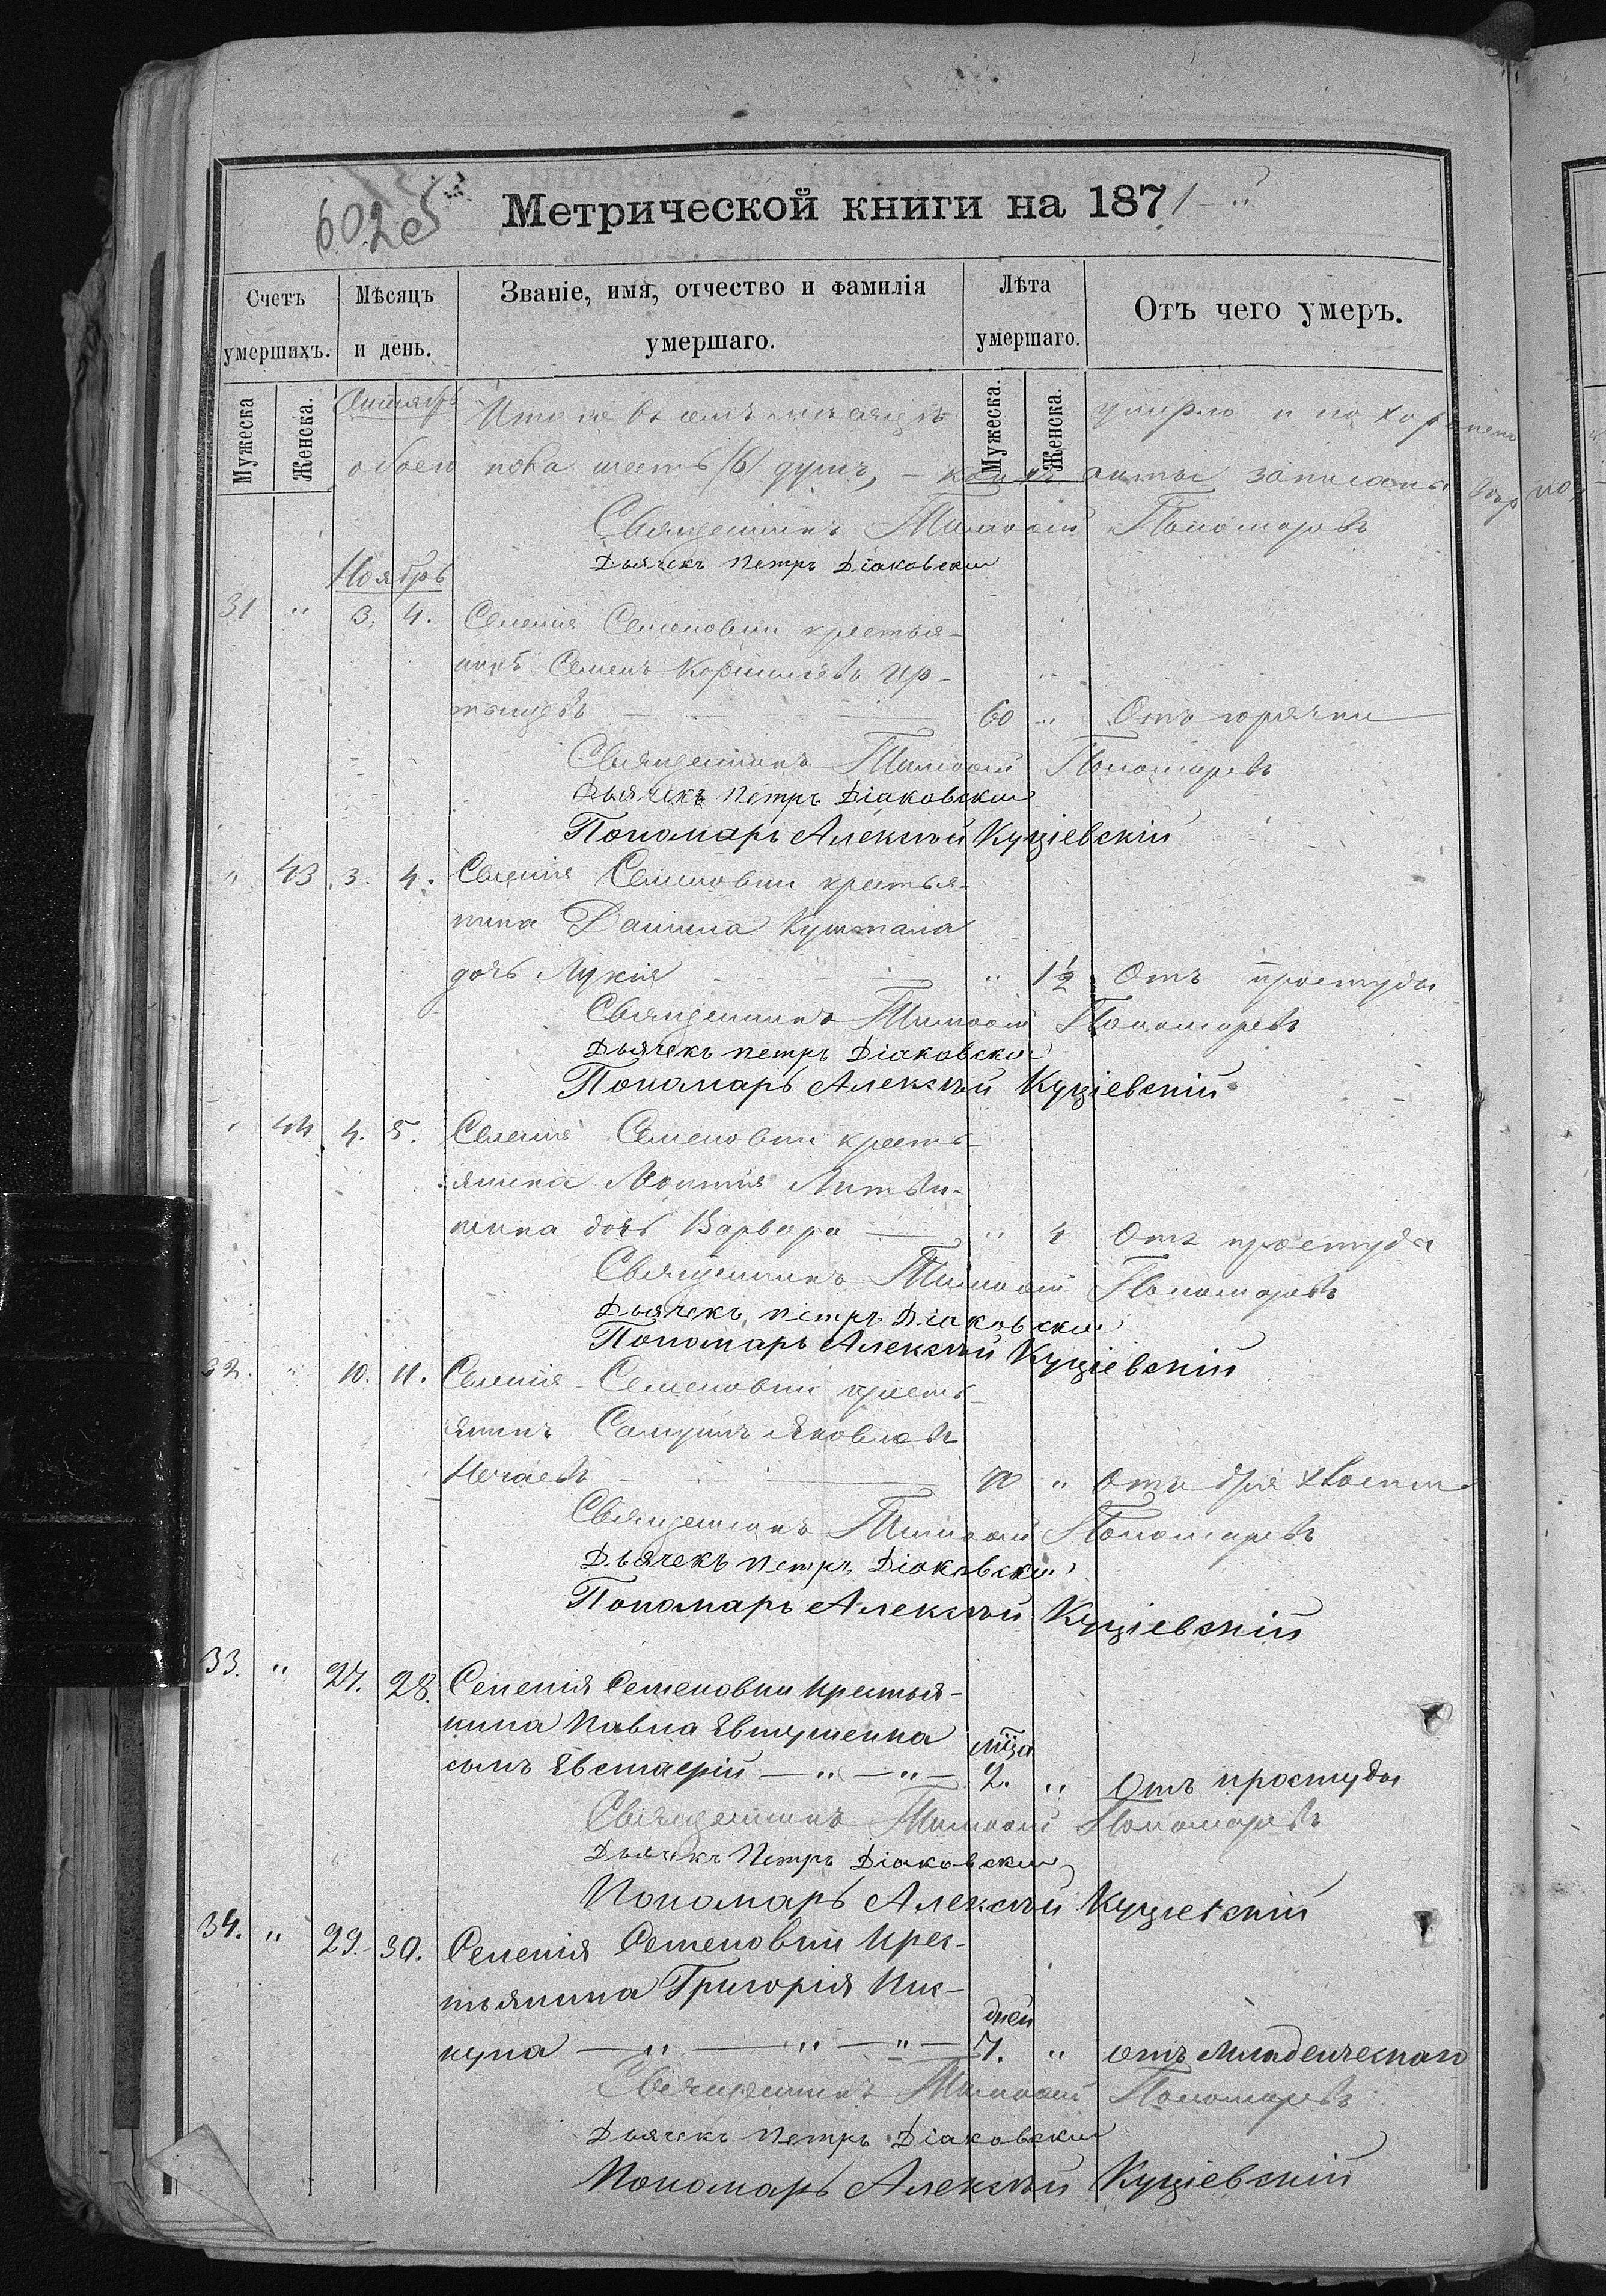 602 об
Метрической книги на 1871
Счетъ
умершихъ.
Мѣсяцъ
и день.
Званіе, имя, отчество и фамилія
умершаго.
Лѣта
умершаго.
Отъ чего умеръ.
Мужеска
Женска.
Мужеска.
Женска.
Октябрь Итого въ семъ мѣсяцѣ умерло и похоронено
обоего пола шесть /6/ душъ, – коихъ акты записаны вѣрно
Священникъ Тимоѳей Пономаревъ
Дьячекъ Петръ Діаковскій
Ноябрь
31 " 3. 4. Селенія Семеновки крестья-
нинъ Семенъ Корниліевъ Ир-
тышевъ 60 " Отъ горячки
Священникъ Тимоѳей Пономаревъ
Дьячекъ Петръ Діаковскій
Пономарь Алексѣй Куціевскій
" 43 3. 4. Селенія Семеновки крестья-
нина Даниила Куштала
дочь Лукія " 1½ Отъ простуды
Священникъ Тимоѳей Пономаревъ
Дьячекъ Петръ Діаковскій
Пономарь Алексѣй Куціевскій
" 44 4. 5. Селенія Семеновки кресть-
янина Леонтія Литви-
нина дочь Варвара " 4 Отъ простуды
Священникъ Тимоѳей Пономаревъ
Дьячекъ Петръ Діаковскій
Пономарь Алексѣй Куціевскій
32. " 10. 11. Селенія Семеновки кресть-
янинъ Самуилъ Яковлевъ
Нечаевъ " Отъ дряхлости
Священникъ Тимоѳей Пономаревъ
Дьячекъ Петръ Діаковскій
Пономарь Алексѣй Куціевскій
33. " 27. 28. Селенія Семеновки крестья-
нина Павла Евтушенка
мца
сынъ Евстаѳій — " — " — 2. " Отъ простуды
Священникъ Тимоѳей Пономаревъ
Дьячекъ Петръ Діаковскій
Пономарь Алексѣй Куціевскій
34. " 29. 30. Селенія Семеновки крес-
тьянина Григорія Пис-
дней
куна — " — " — " — 7. " отъ младенческаго
Священникъ Тимоѳей Пономаревъ
Дьячекъ Петръ Діаковскій
Пономарь Алексѣй Куціевскій